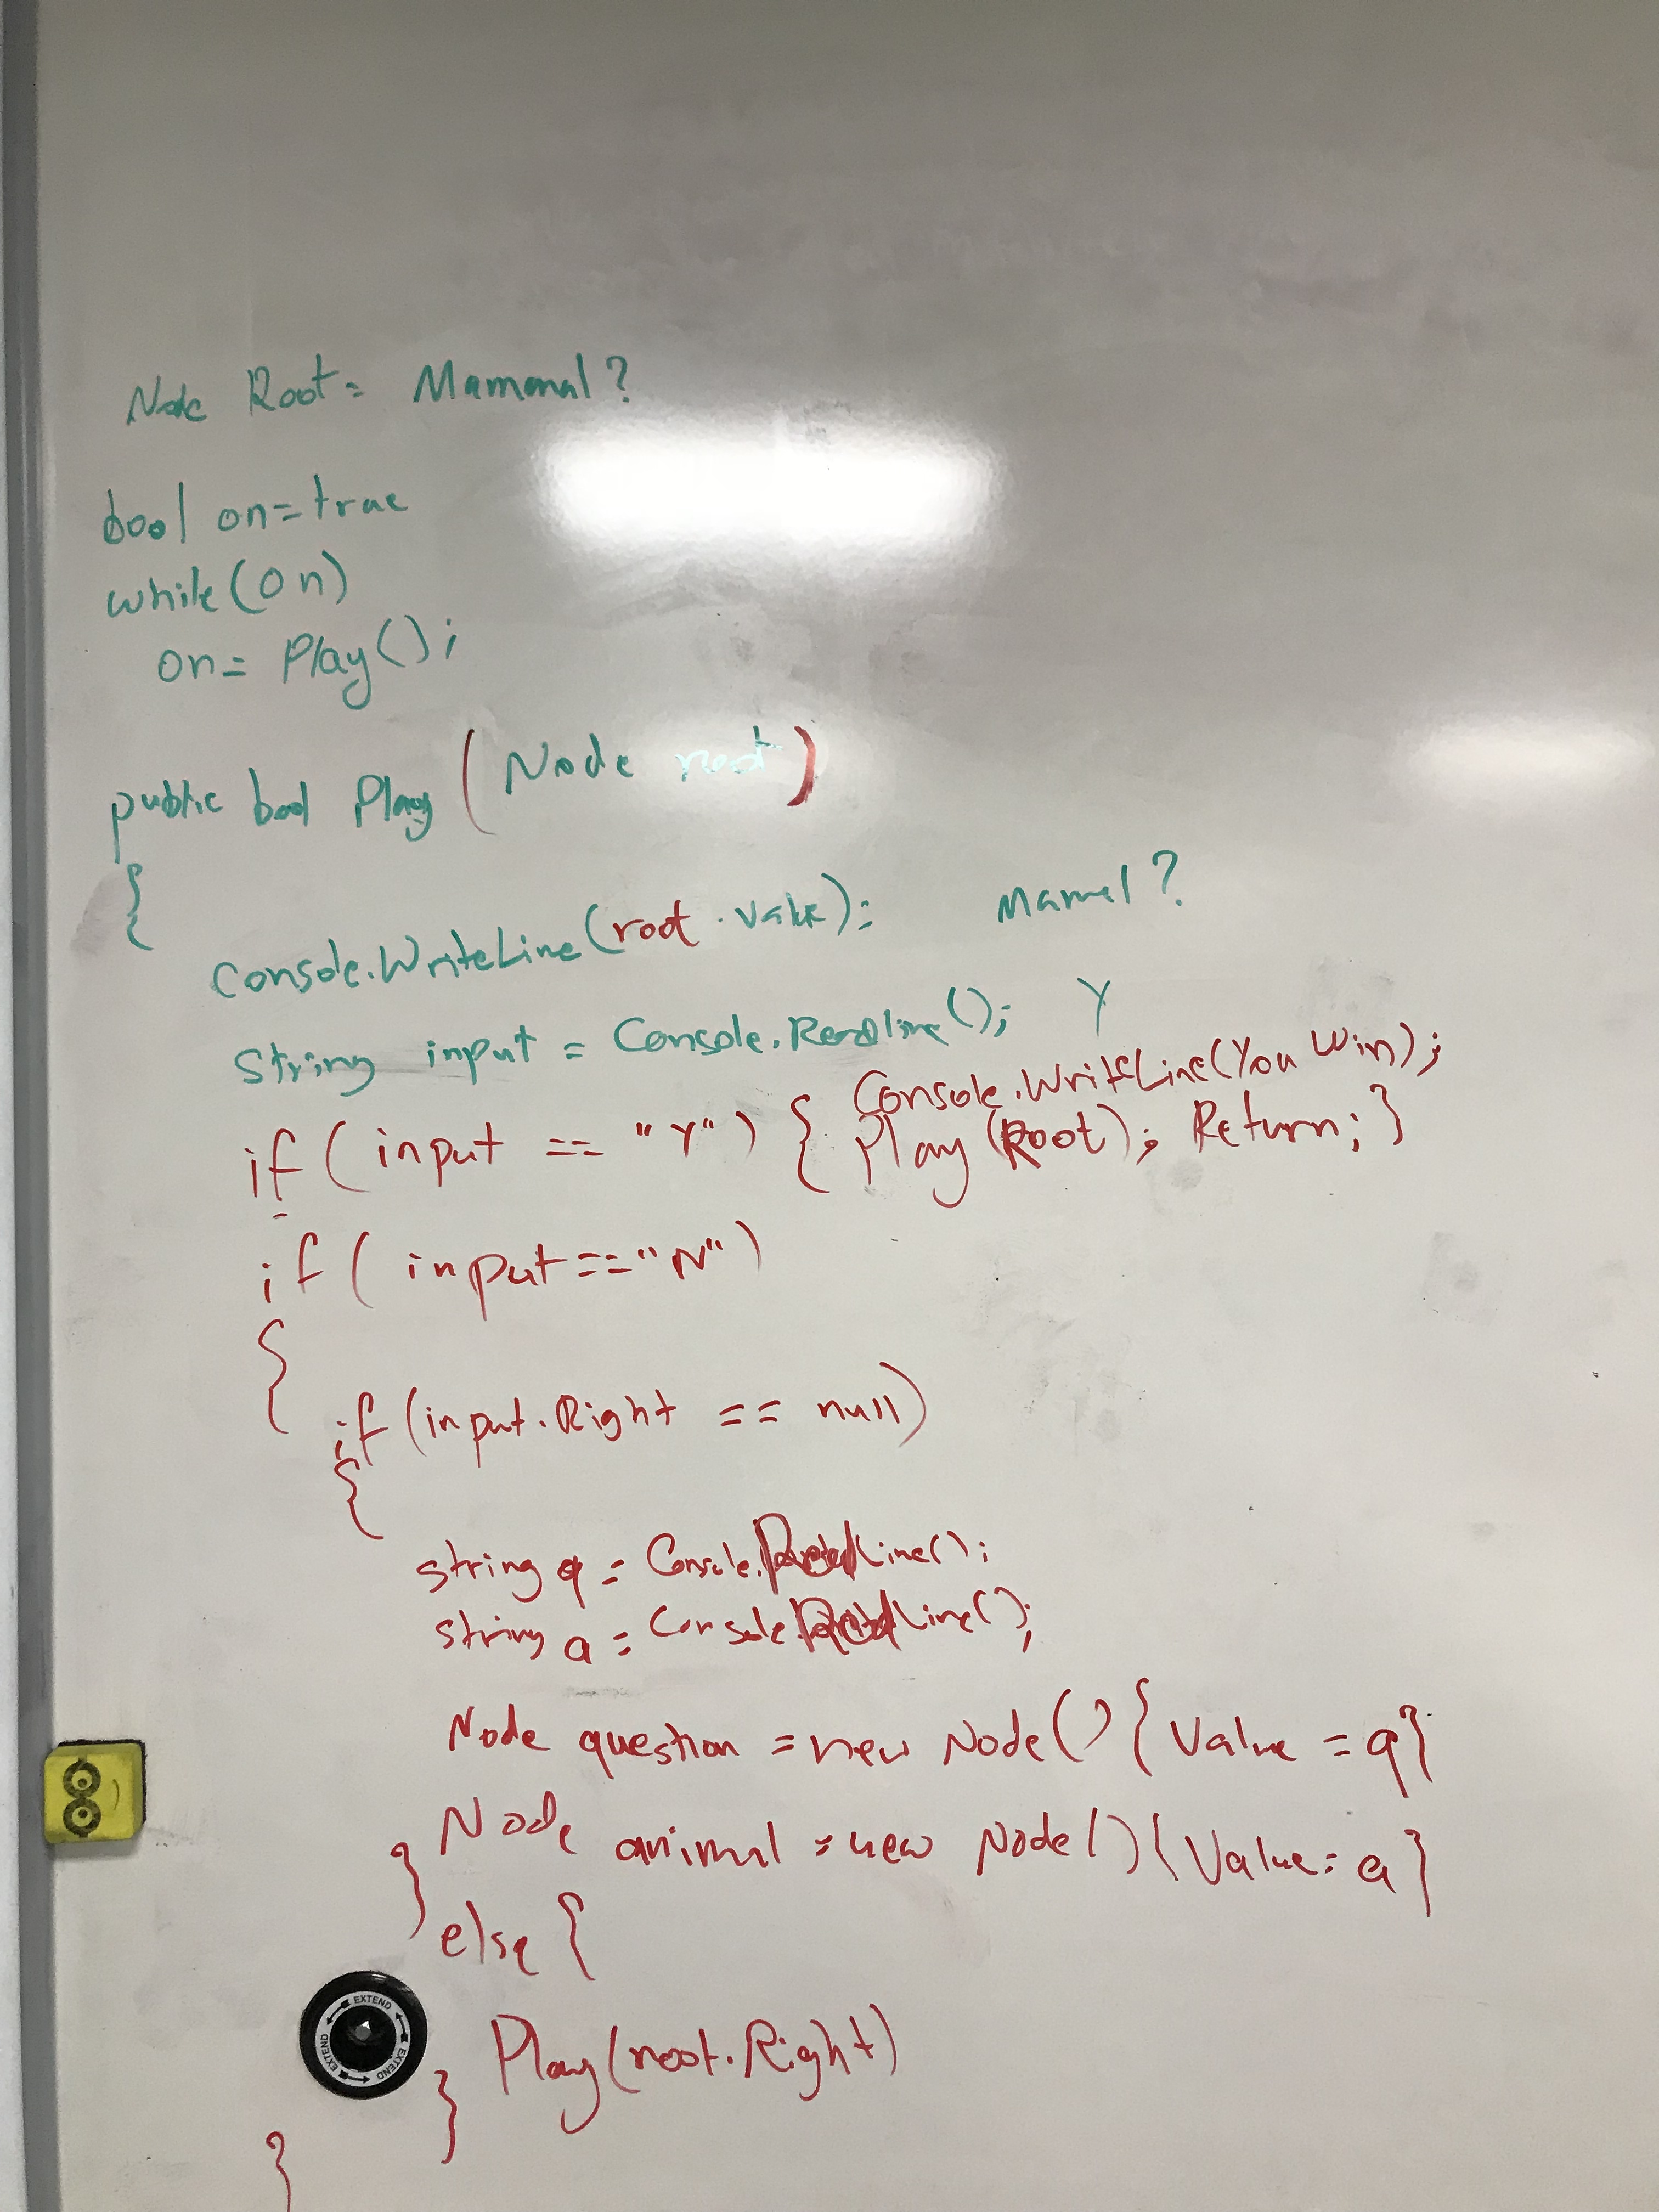 Node Root = Mammal?
bool on = true
while (on)
on = Play();
public bool Play (Node root)
{
Console.WriteLine(root.value); Mamel?
String input = Console.Readline(); Y
if (input == "Y") { Console.WriteLine(You Win);
Play (Root); Return; }
if (input == "N")
{
if (input.Right == null)
{
string q = Console.ReadLine();
string a = Console.ReadLine();
Node question = new Node() { Value = q}
Node animal = new Node() { Value = a }
}
else {
Play(root.Right)
}
}
EXTEND EXTEND EXTEND EXTEND